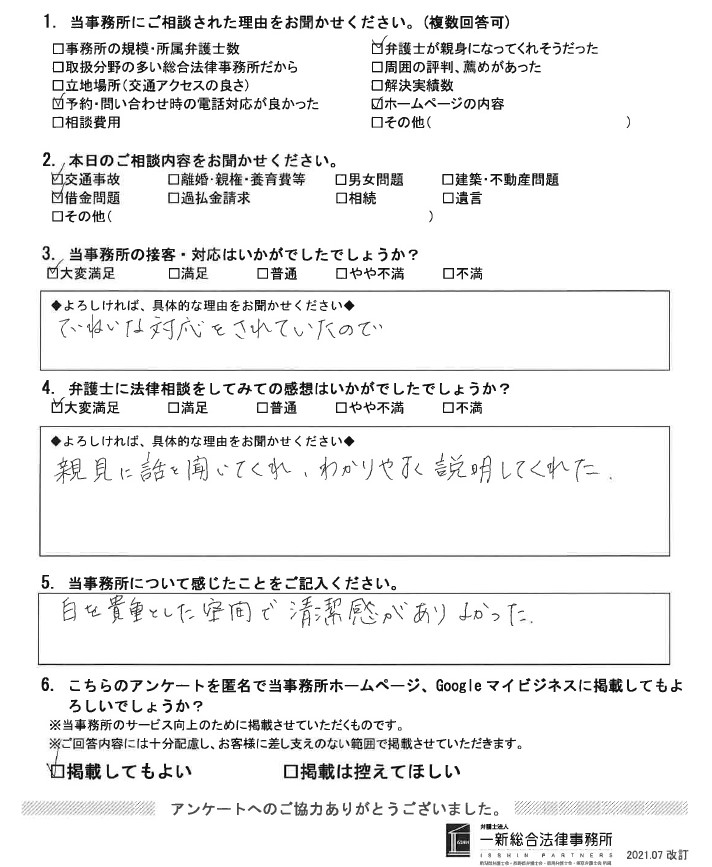 1. 当事務所にご相談された理由をお聞かせください。(複数回答可)
□事務所の規模・所属弁護士数 ☑弁護士が親身になってくれそうだった
□取扱分野の多い総合法律事務所だから □周囲の評判、薦めがあった
□立地場所(交通アクセスの良さ) □解決実績数
☑予約・問い合わせ時の電話対応が良かった ☑ホームページの内容
□相談費用 □その他( )
2. 本日のご相談内容をお聞かせください。
☑交通事故 □離婚・親権・養育費等 □男女問題 □建築・不動産問題
☑借金問題 □過払金請求 □相続 □遺言
□その他( )
3. 当事務所の接客・対応はいかがでしたでしょうか?
☑大変満足 □満足 □普通 □やや不満 □不満
◆よろしければ、具体的な理由をお聞かせください◆
ていねいな対応をされていたので
4. 弁護士に法律相談をしてみての感想はいかがでしたでしょうか?
☑大変満足 □満足 □普通 □やや不満 □不満
◆よろしければ、具体的な理由をお聞かせください◆
親見に話を聞いてくれ、わかりやすく説明してくれた.
5. 当事務所について感じたことをご記入ください。
白を貴重とした空間で清潔感がありよかった.
6. こちらのアンケートを匿名で当事務所ホームページ、Googleマイビジネスに掲載してもよ
ろしいでしょうか?
※当事務所のサービス向上のために掲載させていただくものです。
※ご回答内容には十分配慮し、お客様に差し支えのない範囲で掲載させていただきます。
☑掲載してもよい □掲載は控えてほしい
アンケートへのご協力ありがとうございました。
弁護士法人
一新総合法律事務所
ISSHIN PARTNERS
2021.07 改訂